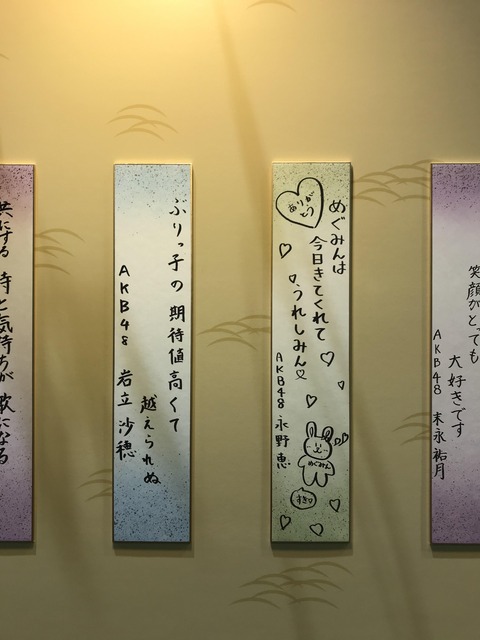 笑顔がとっても
大好きです
AKB48 末永祐月
めぐみんは
今日きてくれて
うれしみん♡
AKB48 永野恵
ありがとう
めぐみん
すき♡
ぶりっ子の期待値高くて
越えられぬ
AKB48 岩立沙穂
共にする 時と気持ちが 歌になる